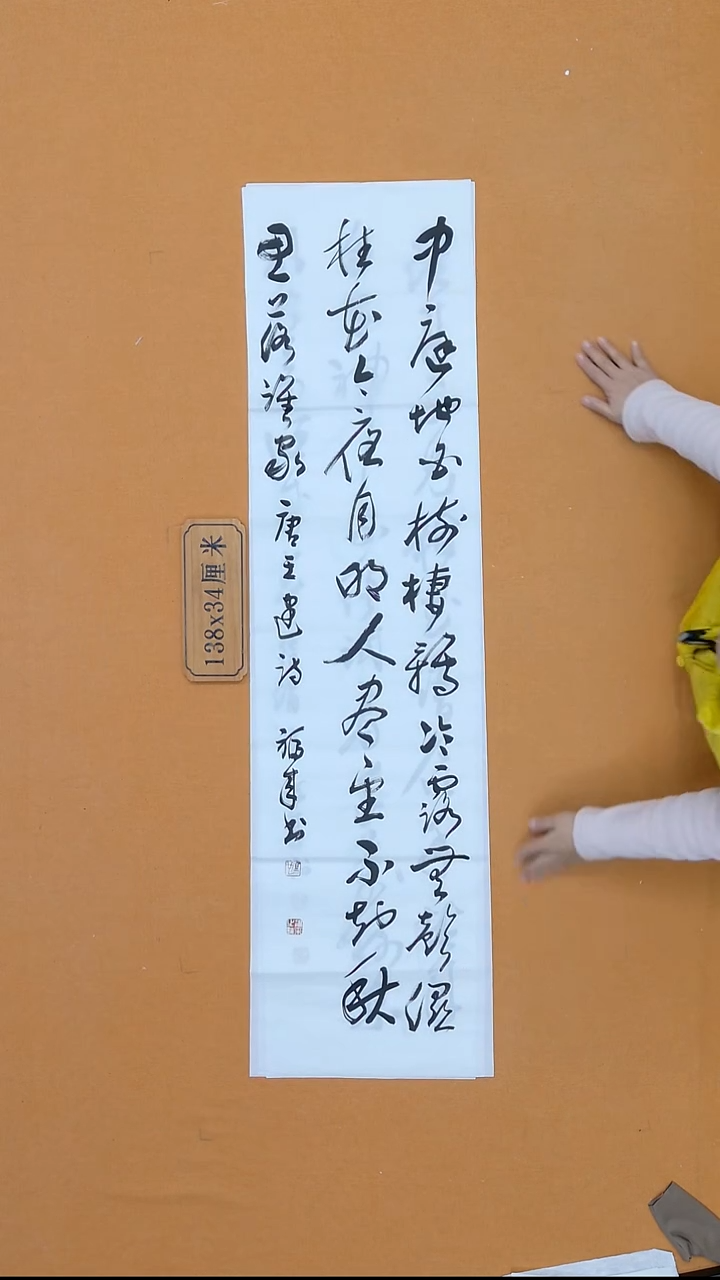 中庭地白樹棲鴉冷露無聲濕
桂花今夜月明人尽望不知秋
思落誰家 唐王建詩 书
138x34厘米